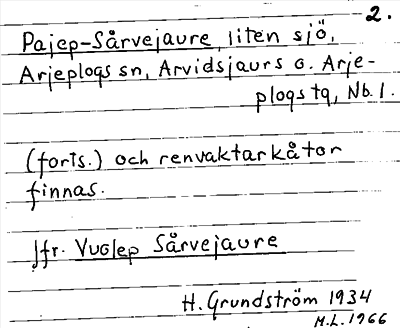 2.
Pajep-Sårvejaure, liten sjö,
Arjeplogs sn, Arvidsjaurs o. Arje-
plogs tg, Nb. l.
(forts.) och renvaktarkåtor
finnas.
Jfr. Vuolep Sårvejaure
H. Grundström 1934
M.L. 1966